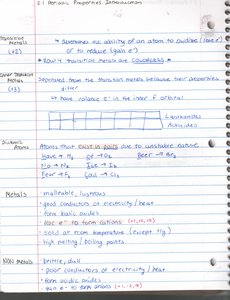 2.1 Periodic Properties Introduction
Transition Metals (+2)
* determined via ability of an atom to oxidize (lose e⁻) or to reduce (gain e⁻)
* Row 4 transition metals are COLORLESS *
Inner Transition Metals (+3)
Separated from the transition metals because their properties differ
↳ have valence e⁻ in the inner F orbital
Lanthanides
Actinides
Diatomic Atoms
Atoms that exist in pairs due to unstable nature
Have → H₂
Of → O₂
Beer → Br₂
No → N₂
Ice → I₂
Fear → F₂
Cold → Cl₂
Metals
malleable, lustrous
• good conductors of electricity/heat
• form basic oxides
• lose e⁻ to form cations (+1,+2,+3)
• solid at room temperature (except Hg)
• high melting/boiling points
Non Metals
brittle, dull
• poor conductors of electricity/heat
• form acidic oxides
• gain e⁻ to form anions (-1,-2,-3)